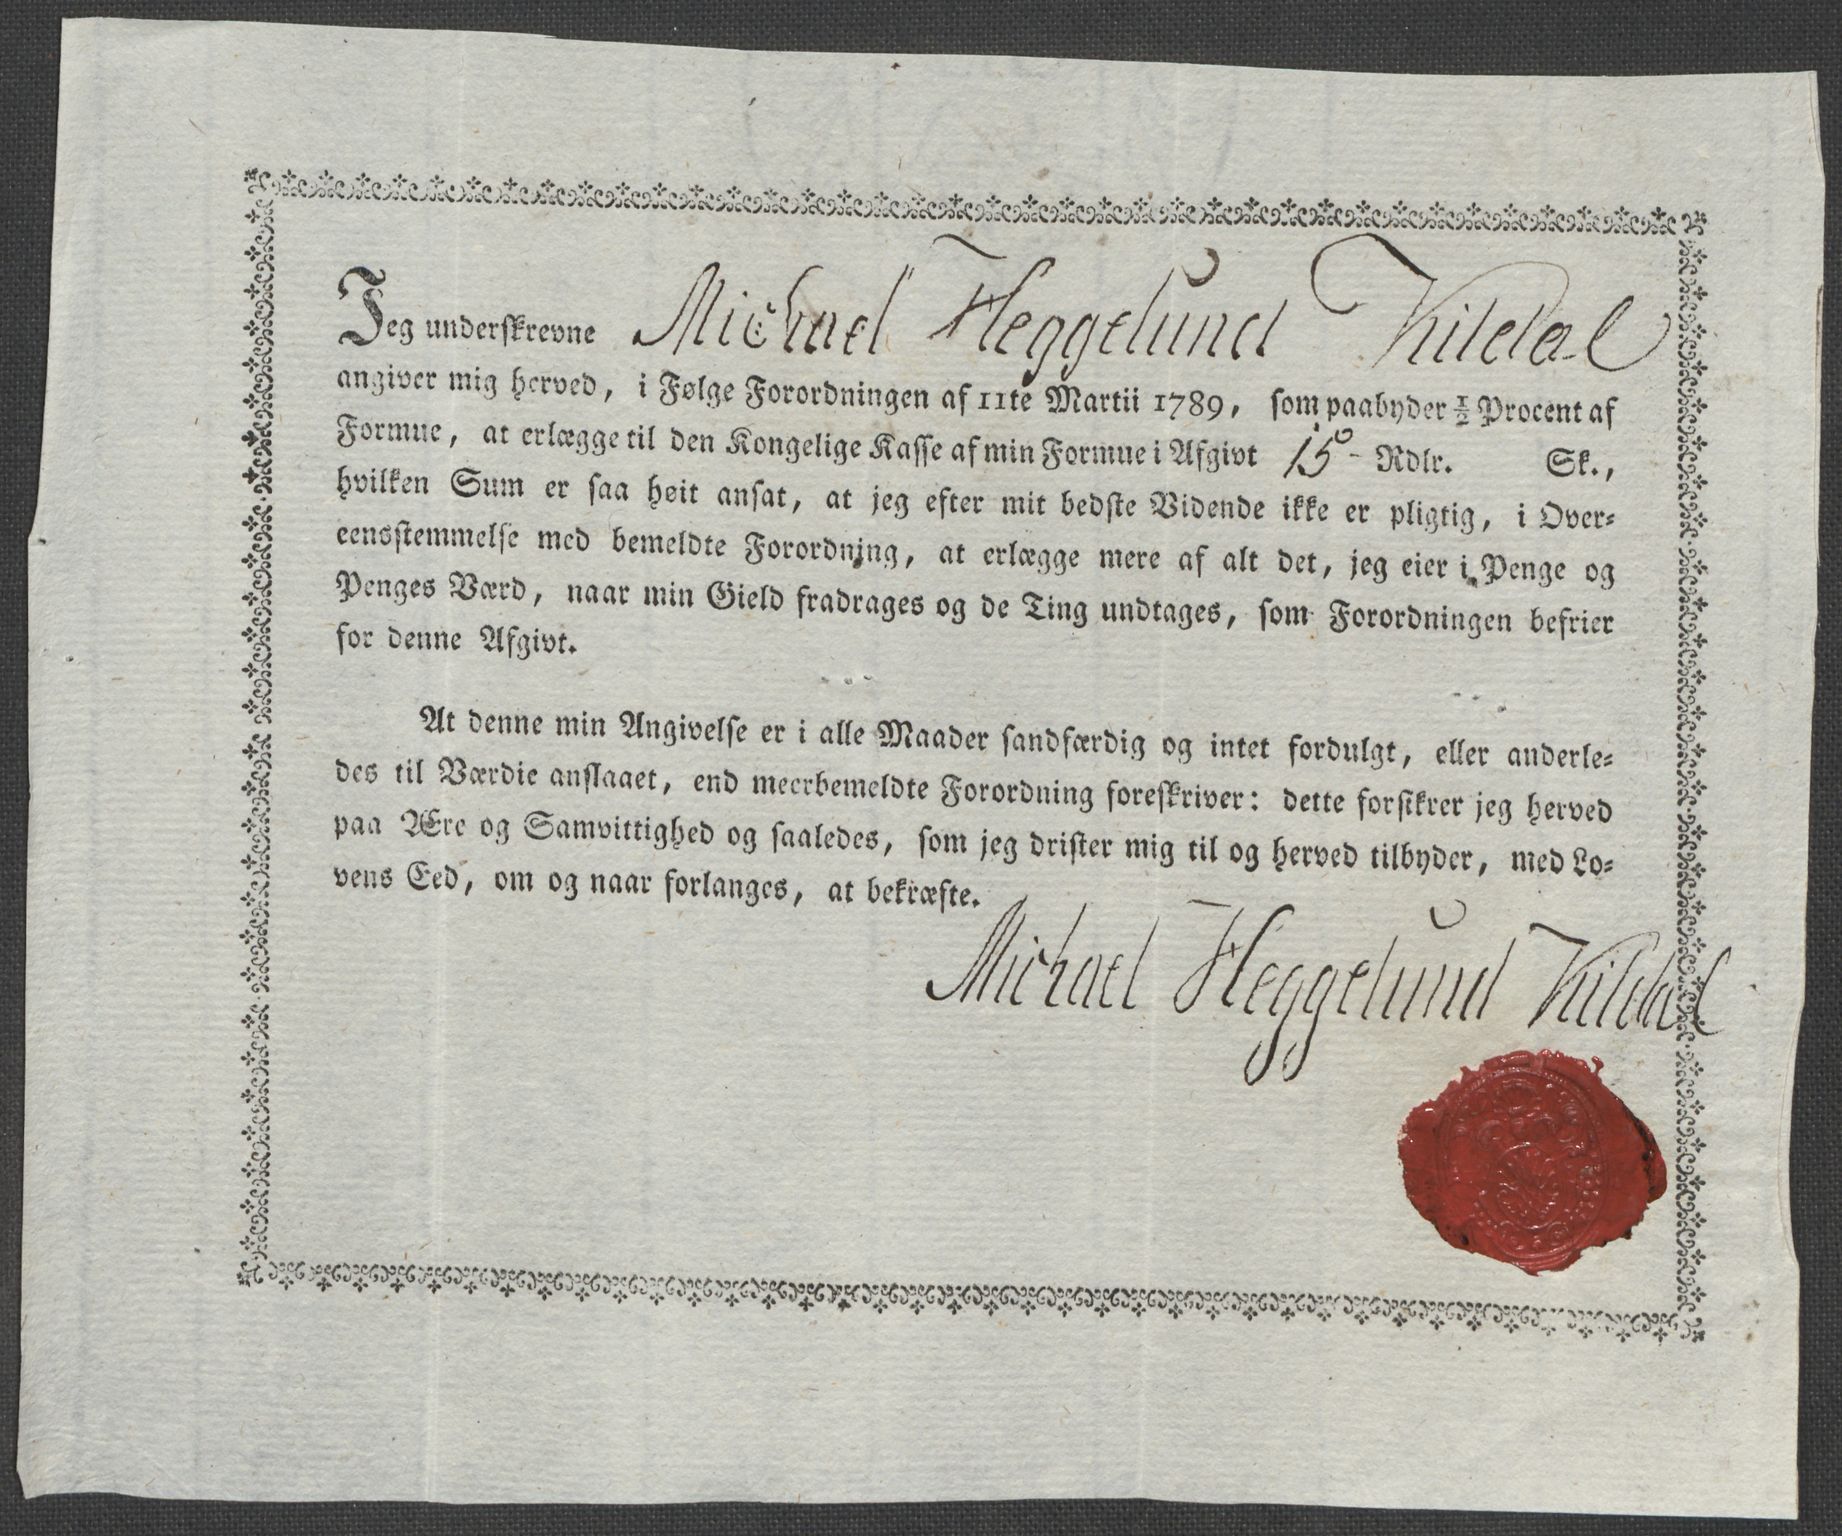 Jeg underskrevne Michael Heggelund Kildal
angiver mig herved, i Følge Forordningen af 11te Martii 1789, som paabyder ½ Procent af
Formue, at erlægge til den Kongelige Kasse af min Formue i Afgivt 15 - Rdlr. Sk.,
hvilken Sum er saa høit ansat, at jeg efter mit bedste Vidende ikke er pligtig, i Over-
eensstemmelse med bemeldte Forordning, at erlægge mere af alt det, jeg eier i Penge og
Penges Værd, naar min Gield fradrages og de Ting undtages, som Forordningen befrier
for denne Afgivt.
At denne min Angivelse er i alle Maader sandfærdig og intet fordulgt, eller anderle-
des til Værdie anslaaet, end meerbemeldte Forordning foreskriver: dette forsikrer jeg herved
paa Ære og Samvittighed og saaledes, som jeg drister mig til og herved tilbyder, med Lo-
vens Eed, om og naar forlanges, at bekræfte.
Michael Heggelund Kildal